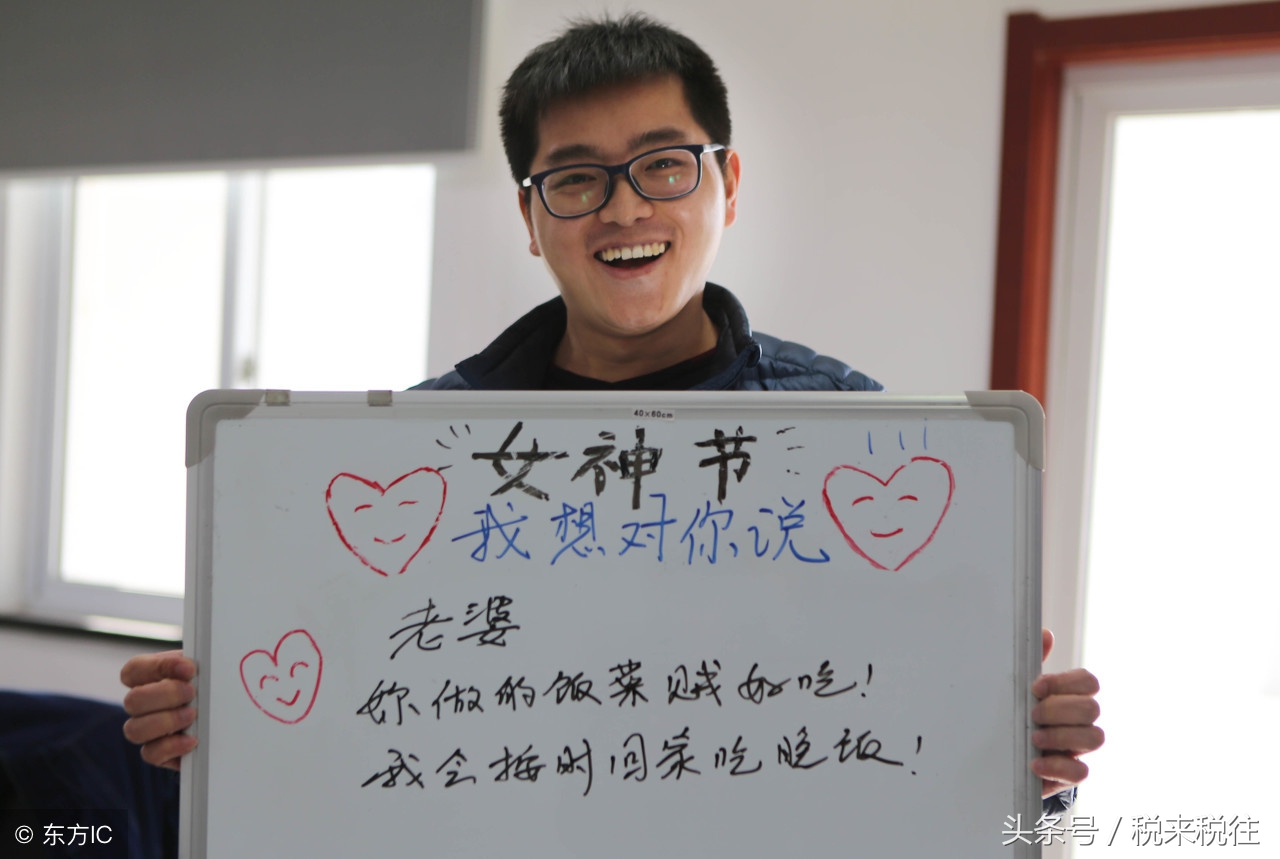 40×60cm
女神节
我想对你说
老婆
妳做的饭菜贼好吃！
我会按时回家吃晚饭！
© 东方IC
头条号 / 税来税往